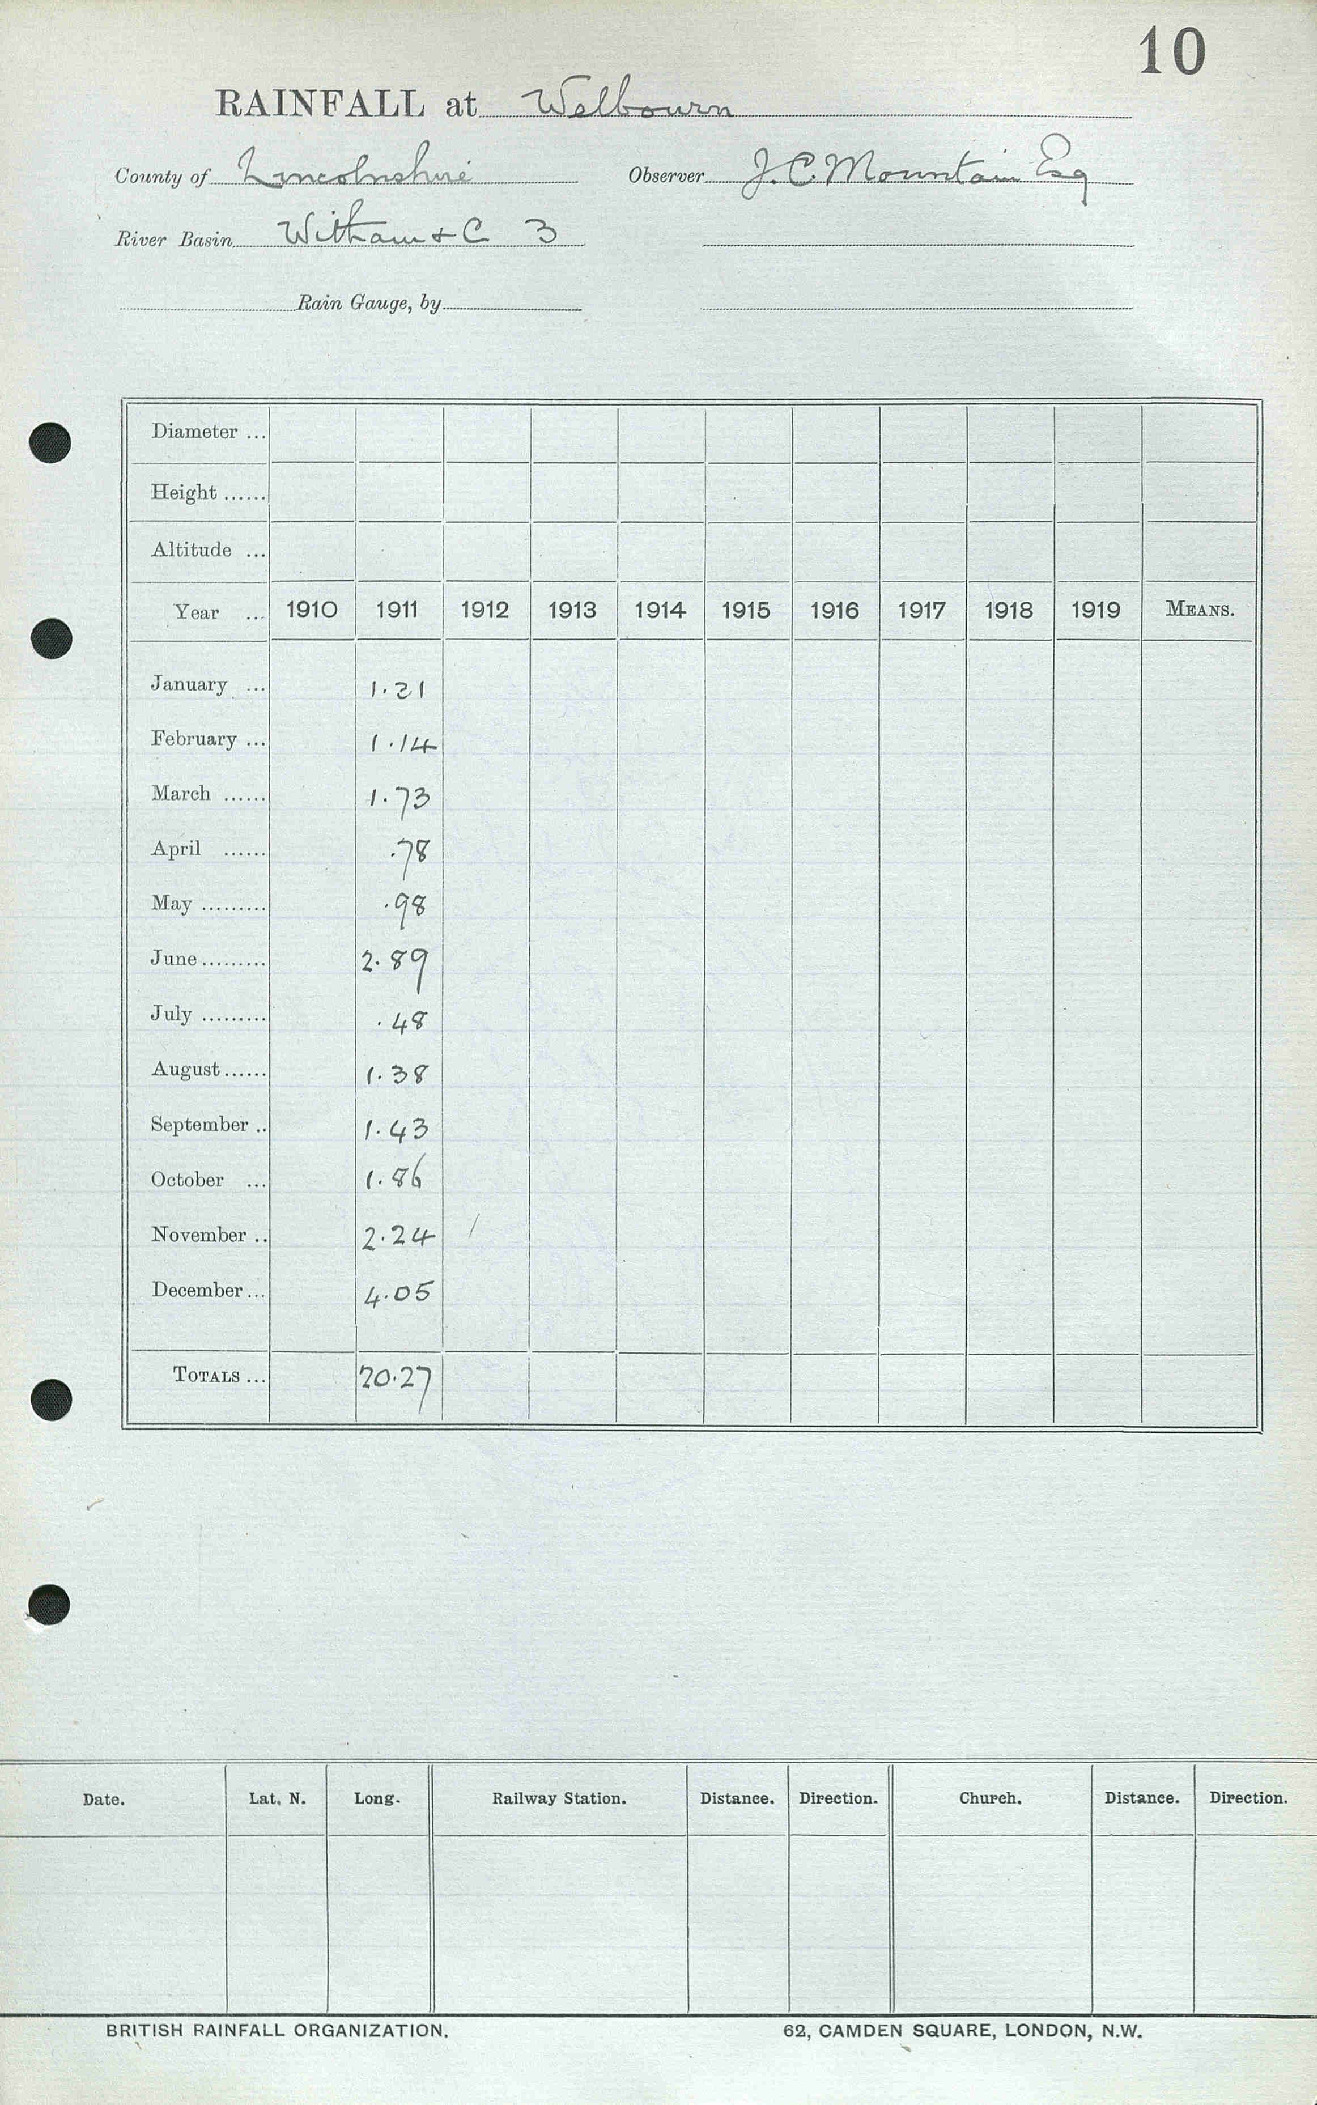 10
RAINFALL at Welbourn
County of Lincolnshire Observer J. C. Mountain Esq
River Basin Witham & C 3
Rain Gauge, by
Diameter ...
Height ......
Altitude ...
Year ... 1910 1911 1912 1913 1914 1915 1916 1917 1918 1919 MEANS.
January ... 1.21
February ... 1.14
March ...... 1.73
April ...... .78
May ......... .98
June ......... 2.89
July ......... .48
August ...... 1.38
September .. 1.43
October ... 1.86
November .. 2.24
December ... 4.05
TOTALS ... 20.27
Date. Lat. N. Long. Railway Station. Distance. Direction. Church. Distance. Direction.
BRITISH RAINFALL ORGANIZATION. 62, CAMDEN SQUARE, LONDON, N.W.